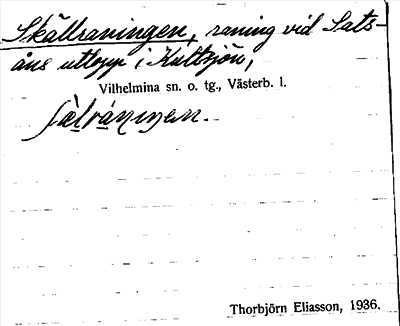 Skällraningen, raning vid Sats-
åns utlopp i Kultsjön,
Vilhelmina sn. o. tg., Västerb. l.
Thorbjörn Eliasson, 1936.